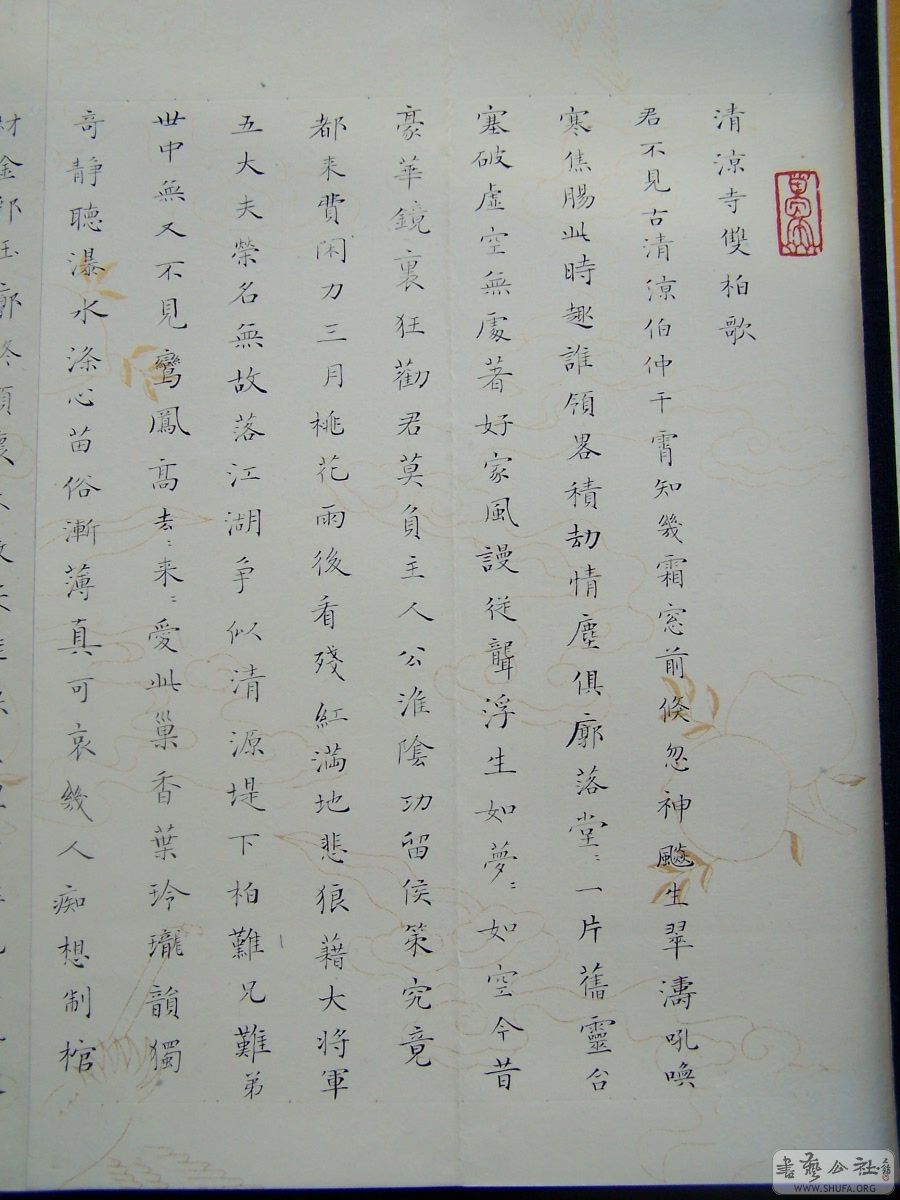 清涼寺雙柏歌
君不見古清涼伯仲干霄知幾霜窓前倏忽神飈生翠濤吼喚
寒焦腸此時趣誰領畧積劫情塵俱廓落堂〻一片舊靈台
塞破虛空無處著好家風謾從聾浮生如夢〻如空今昔
豪華鏡裏狂勸君莫負主人公淮陰功留侯策究竟
都来費閑力三月桃花雨後看殘紅滿地悲狼藉大将軍
五大夫榮名無故落江湖争似清源堤下柏難兄難弟
世中無又不見鸞鳳髙去〻来〻愛此巢香葉玲瓏韻獨
竒靜聽瀑水滌心苗俗漸薄真可哀幾人痴想制棺
書藝公社
WWW.SHUFA.ORG